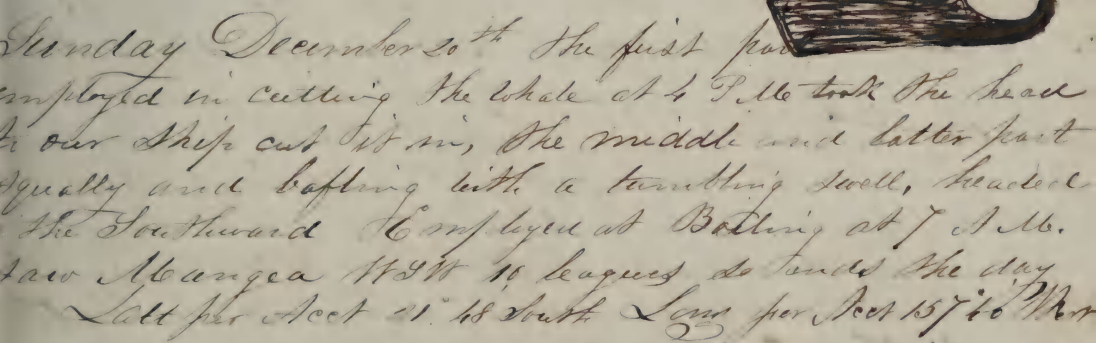 Sunday December 20th the first par
mployed in cutting the whale at 4 P M took the head
to our ship cut it in, the middle and latter part
squally and baffling with a tumbling swell, headed
the Southward Employed at Boiling at 7 A M.
saw Mangea WSW 10 leagues so ends the day
Latt per Acct 21° 48 South Long per Acct 157°